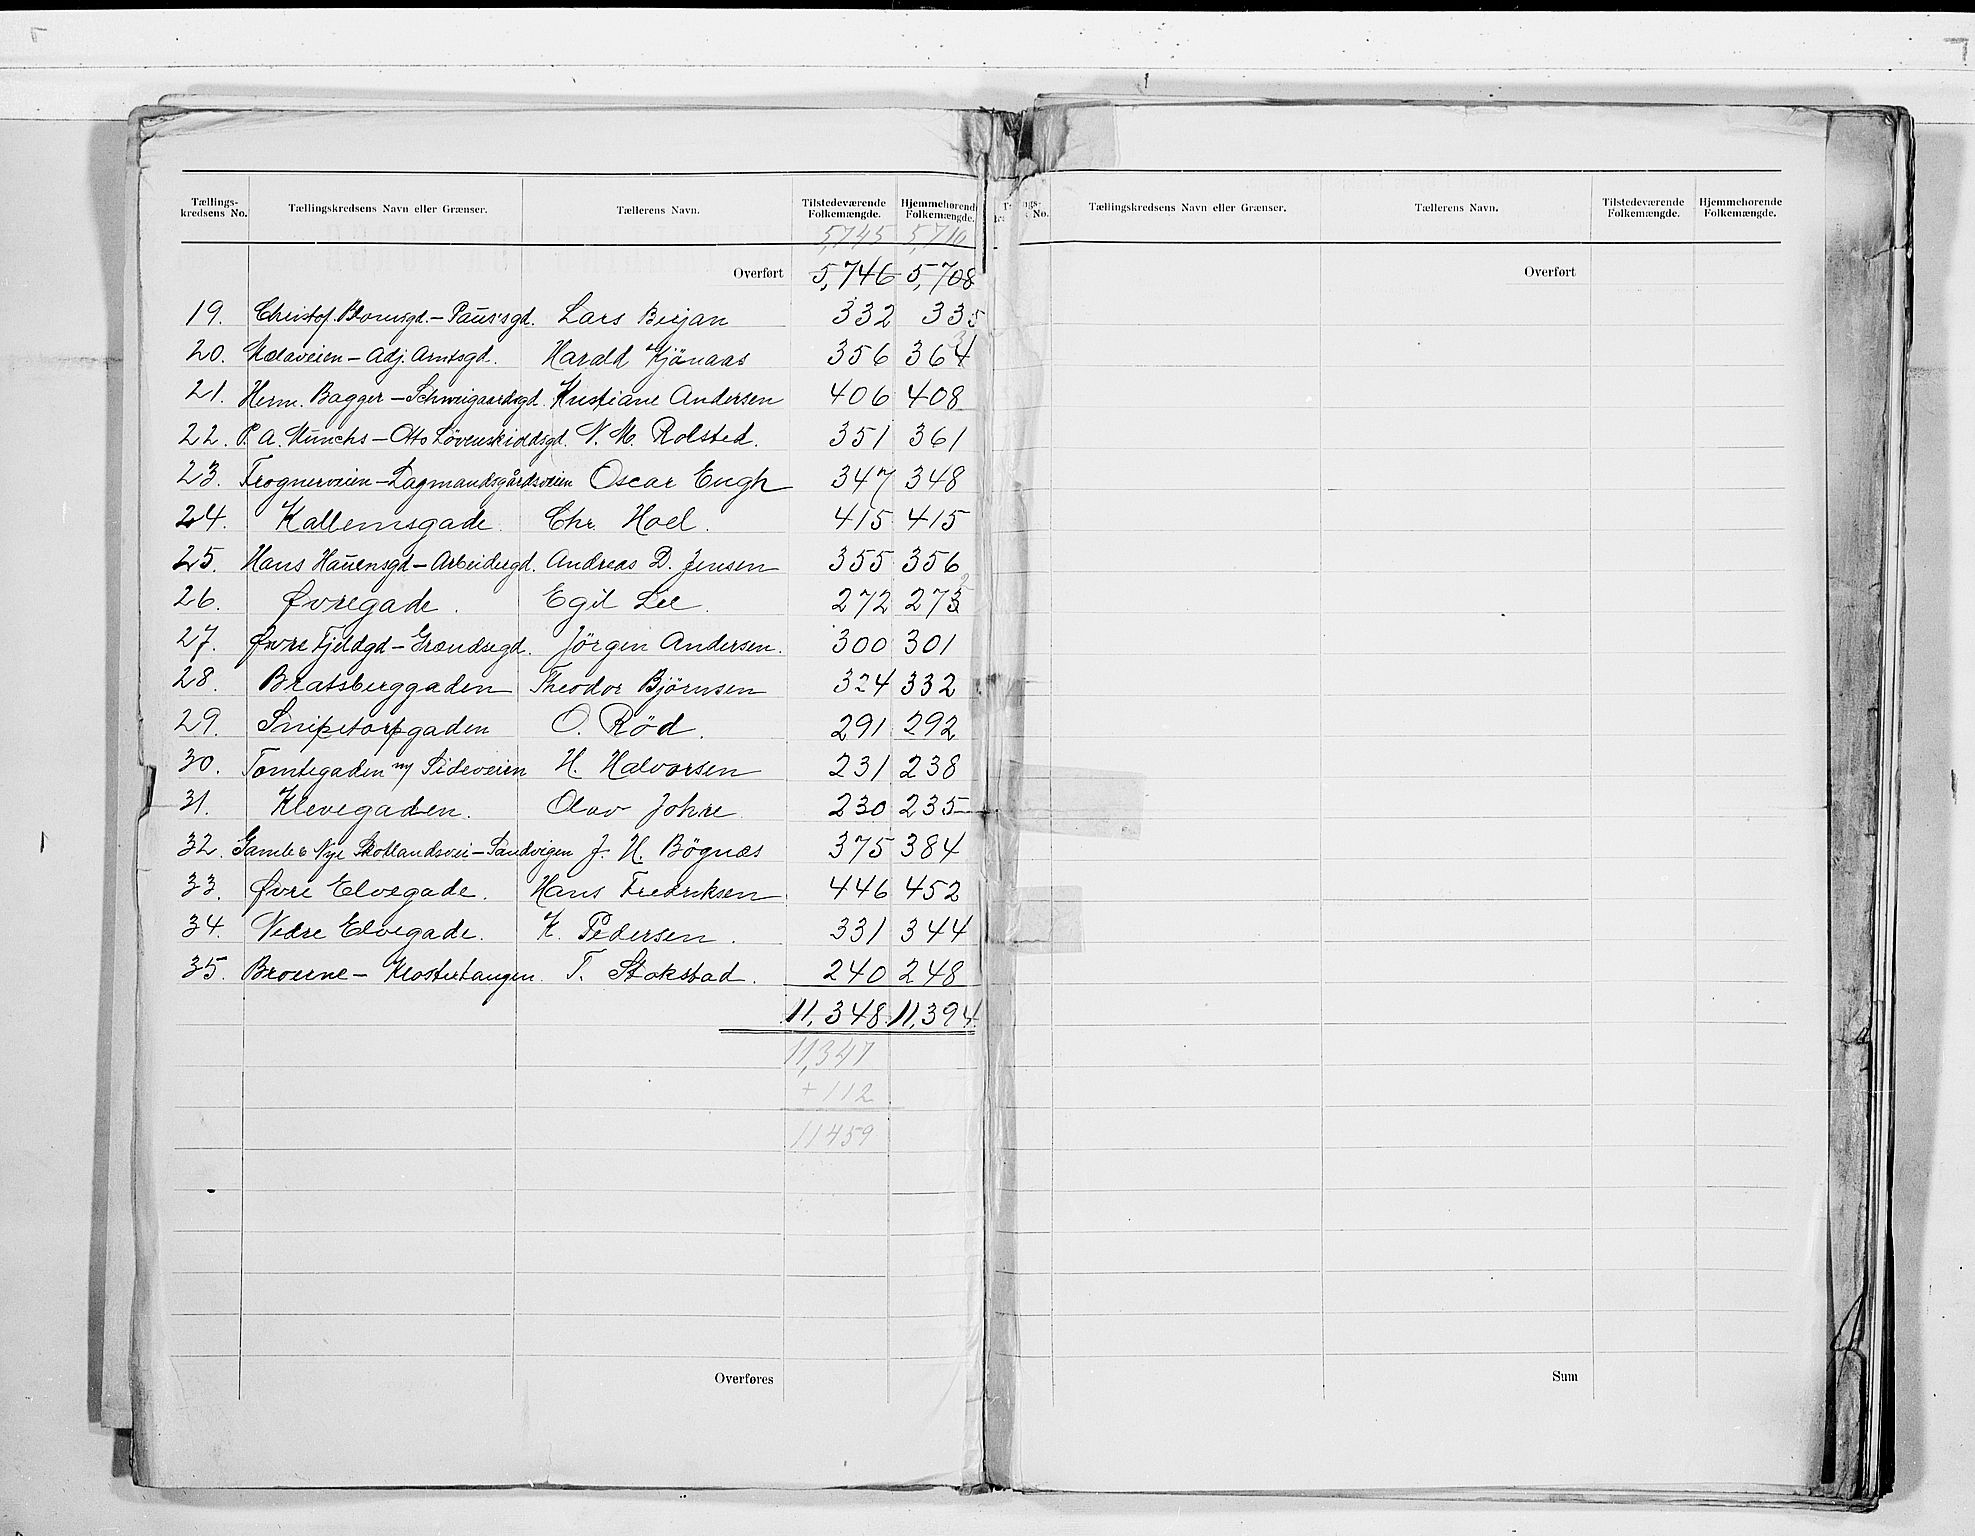 Tællings-kredsens No. Tællingskredsens Navn eller Grænser. Tællerens Navn. Tilstedeværende Folkemængde. Hjemmehørende Folkemængde.
5,745 5,710
Overført 5,746 5,708
19. Christof. Blomsgd. - Paus'sgd. Lars Berjan 332 335
20. Mælaveien - Adj. Amtsgd. Harald Kjönaas 356 364
21. Herm. Bagger - Schweigaardsgd. Kristiane Andersen 406 408
22. P. A. Munchs - Otto Lövenskioldsgd. N. M. Rolsted. 351 361
23. Frognerveien - Dagmandsgårdsveien Oscar Engh 347 348
24. Kallemsgade Chr. Hoel. 415 415
25. Hans Hauensgd - Arbeidergd. Andreas D. Jensen 355 356
26. Øvregade. Egil Lie. 272 273
27. Øvre Fjeldgd - Grændsegd. Jörgen Andersen. 300 301
28. Bratsberggaden Theodor Björnsen 324 332
29. Snipetorpgaden O. Röd. 291 292
30. Tomtegaden m/ Sideveien H. Halvorsen 231 238
31. Klevegaden. Olav Johre 230 235
32. Gamle & Nye Skotlandsvei - Sandvigen J. H. Bögnæs 375 384
33. Øvre Elvegade. Hans Fredriksen 446 452
34. Nedre Elvegade. K. Pedersen. 331 344
35. Broerne - Klostertangen. T. Stokstad. 240 248
11,348 11,394
11,347
+ 112
11459
Overføres
Tællingskredsens Navn eller Grænser. Tællerens Navn. Tilstedeværende Folkemængde. Hjemmehørende Folkemængde.
Overført
Sum